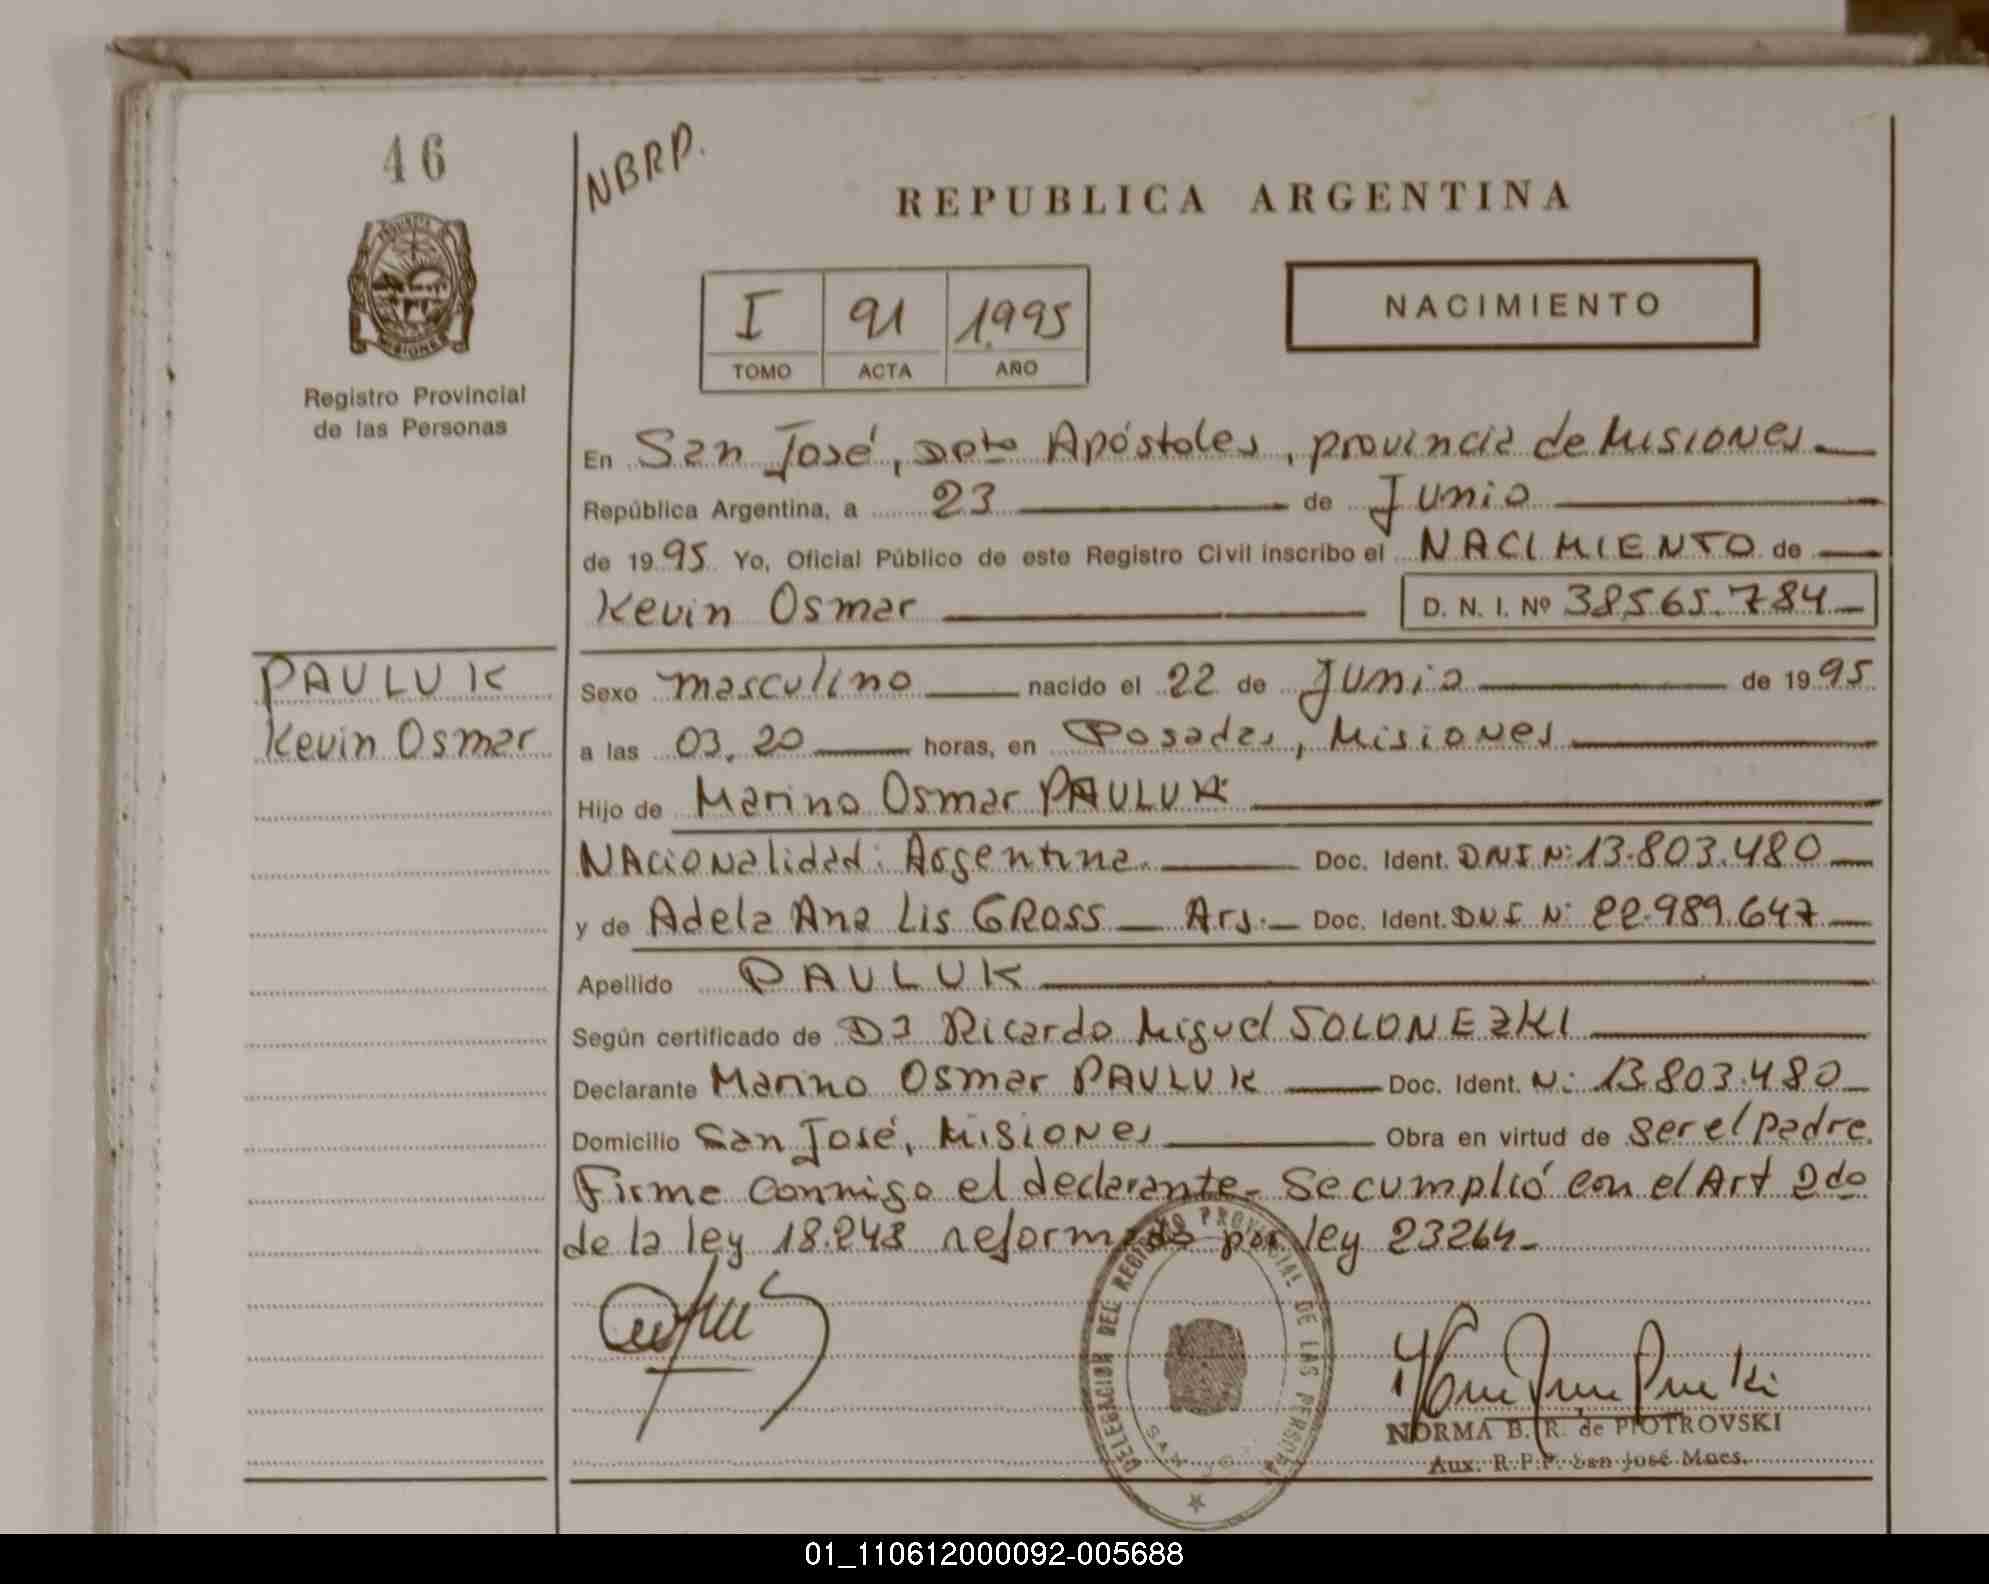 46
NBRP.
REPUBLICA ARGENTINA
PROVINCIA
MISIONES
I 91 1.995
TOMO ACTA AÑO
NACIMIENTO
Registro Provincial
de las Personas
En San José, Dpto Apóstoles, provincia de Misiones
República Argentina, a 23 de Junio
de 1995 Yo, Oficial Público de este Registro Civil inscribo el NACIMIENTO de
Kevin Osmar D. N. I. Nº 38.565.784
PAULUK
Kevin Osmar
Sexo masculino nacido el 22 de Junio de 1995
a las 03,20 horas, en Posadas, Misiones
Hijo de Marino Osmar PAULUK
NAcionalidad: Argentina. Doc. Ident. DNI N: 13.803.480
y de Adela Ana Lis GROSS Arg. Doc. Ident. DNI N: 22.989.647
Apellido PAULUK
Según certificado de Dr Ricardo Miguel SOLONEZKI
Declarante Marino Osmar PAULUK Doc. Ident. N: 13.803.480
Domicilio San José, Misiones Obra en virtud de ser el padre.
Firma conmigo el declarante- Se cumplió con el Art 2do
de la ley 18.248 reformada por ley 23264-
DELEGACION DEL REGISTRO PROVINCIAL DE LAS PERSONAS
NORMA B. R. de PIOTROVSKI
Aux. R.P.P. San José Mnes.
01_110612000092-005688